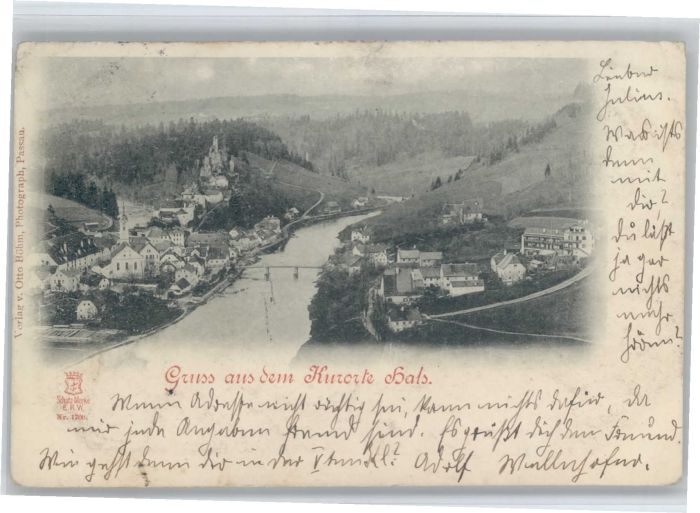 Verlag v. Otto Böhm, Photograph, Passau.
Gruss aus dem Kurorte Hals.
Schutz-Marke
E. R. W.
Nr. 1700.
Lieber
Julius.
Was ists
denn
mit
dir?
Du läßt
ja gar
nichts
mehr
hören?
Wenn Adresse nicht richtig sei, kann nichts dafür, da
mir jede Angaben fremd sind. Es grüßt dich dein Freund.
Wie gehst denn dir in der V? Adolf Wallnhofer.